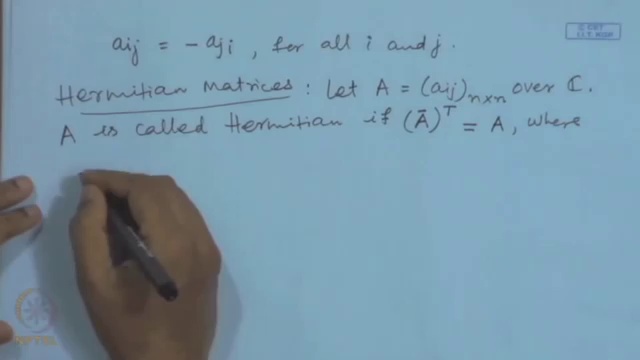 © CET
I.I.T. KGP
aij = - aji, for all i and j.
Hermitian Matrices : Let A = (aij)n×n over ℂ.
A is called Hermitian if (Ā)ᵀ = A, where
NPTEL